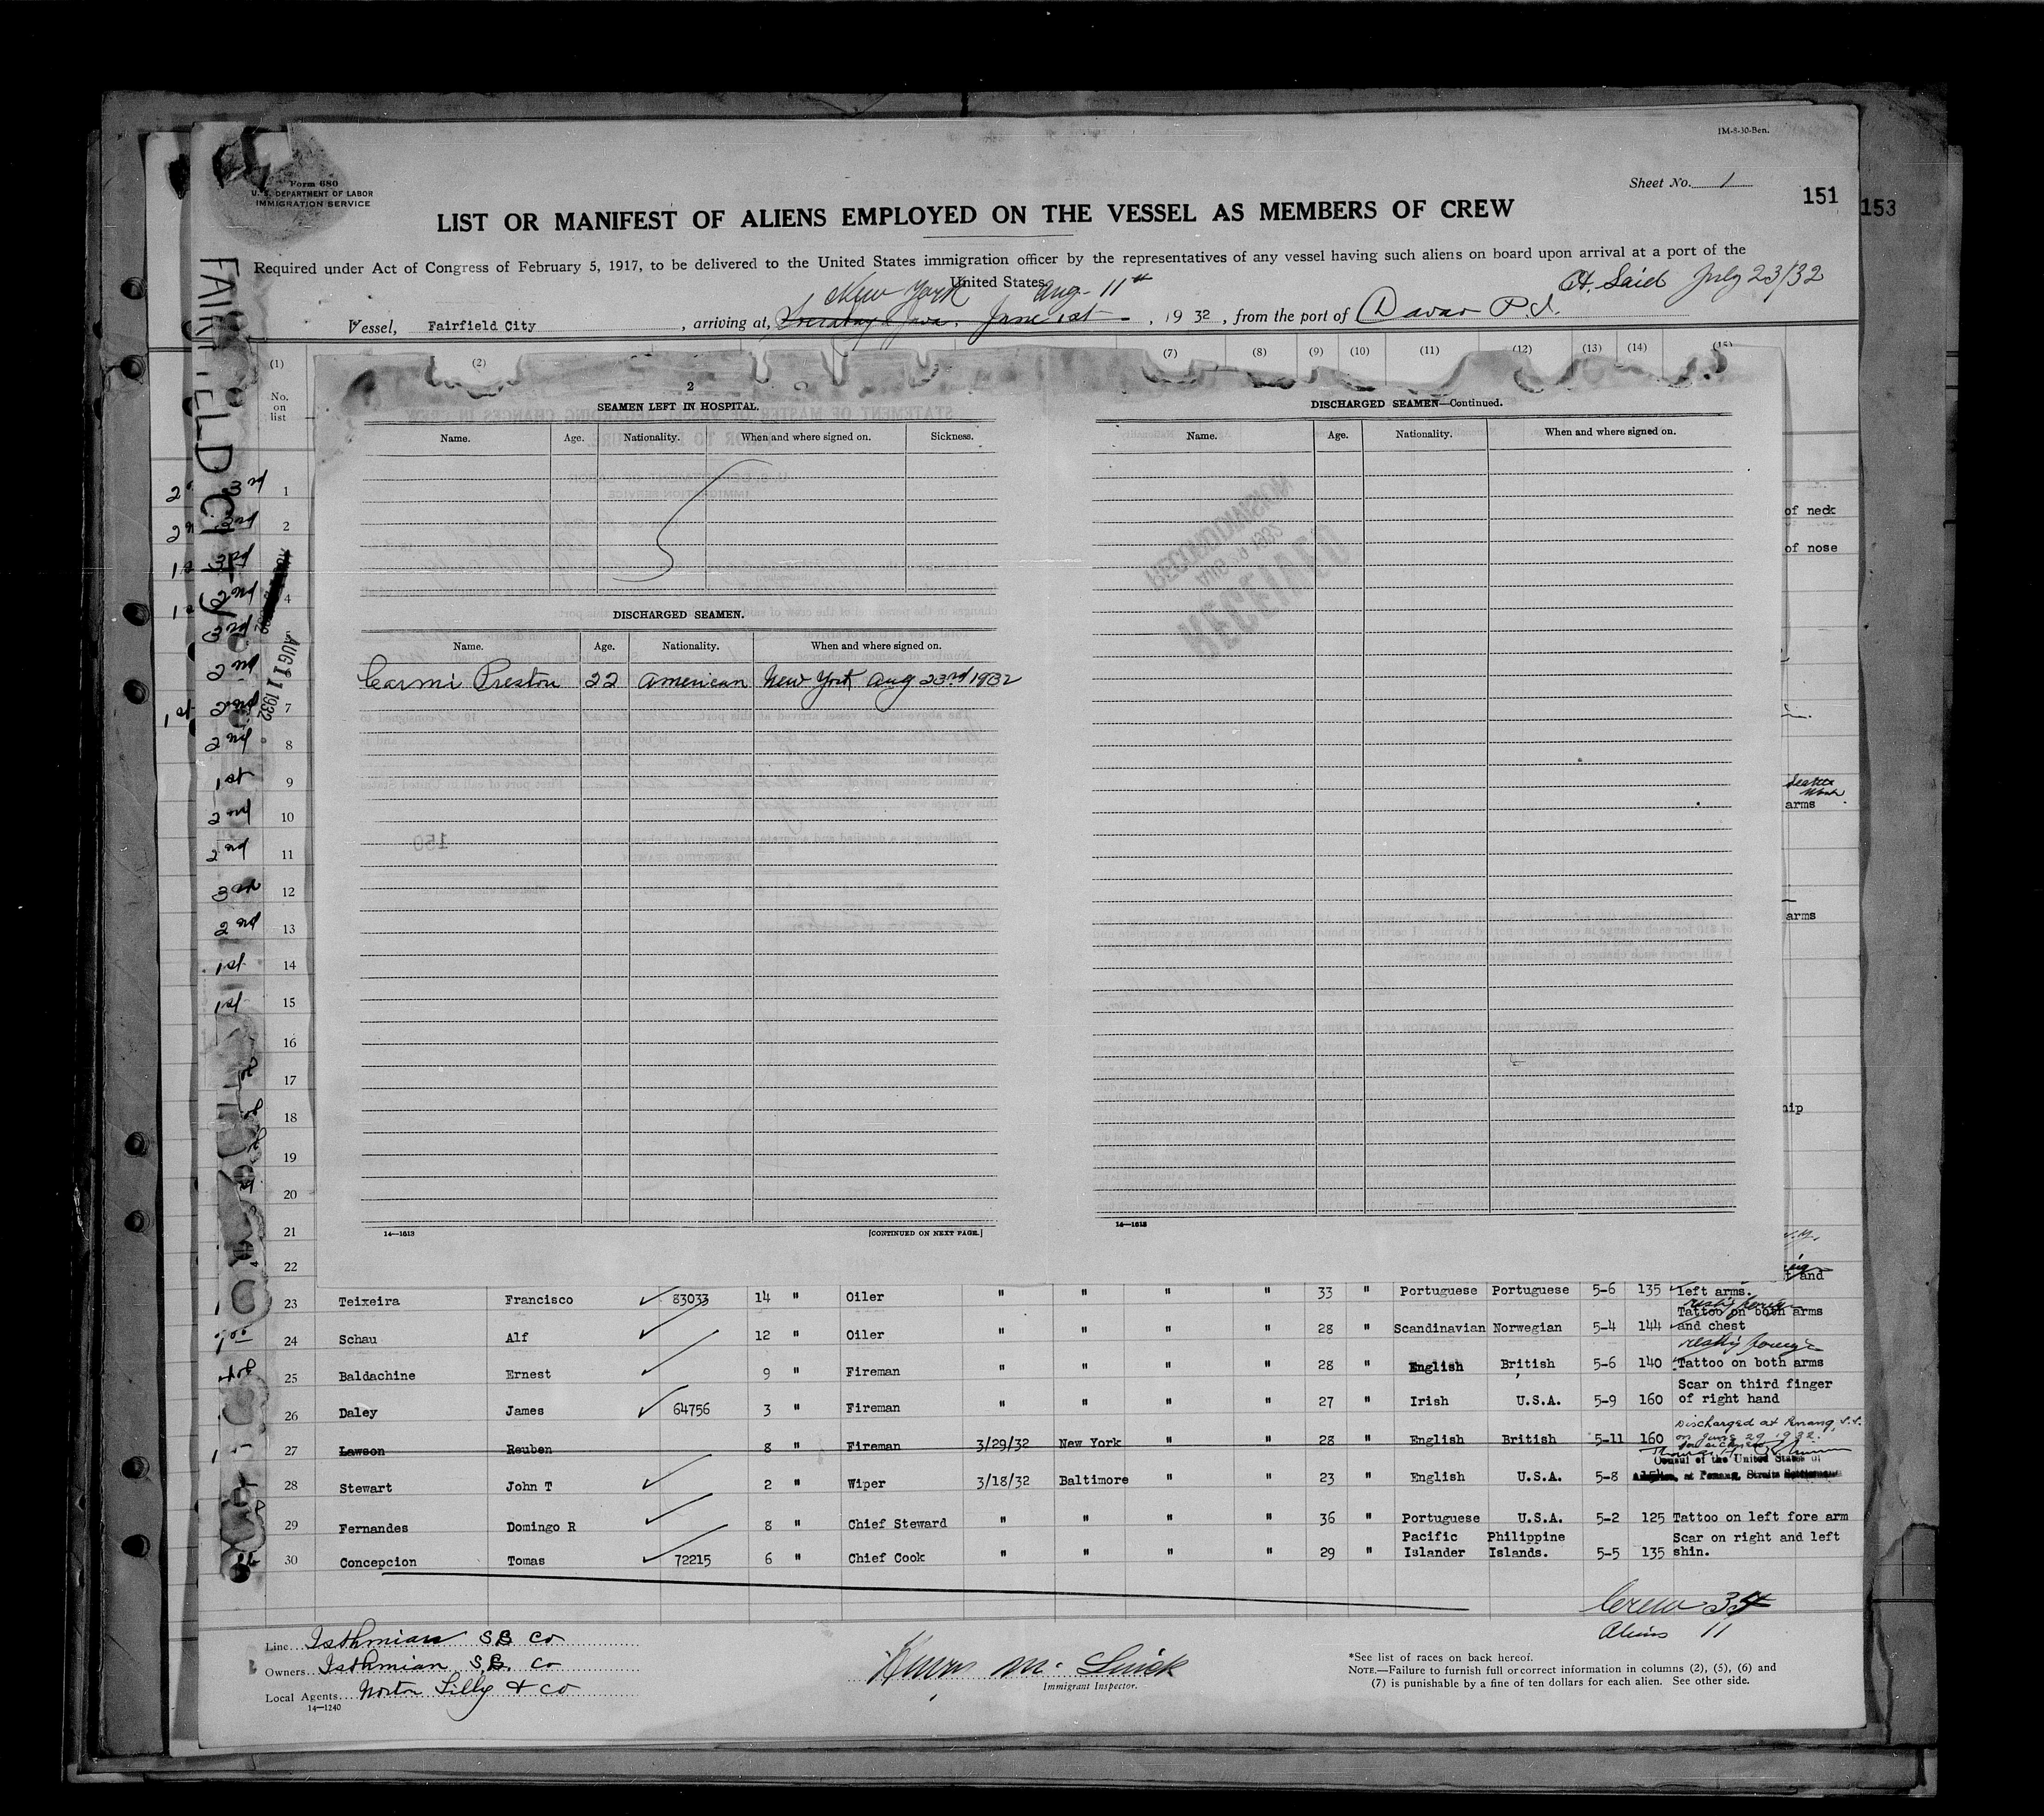 1M-8-30-Ben.
Form 680
U. S. DEPARTMENT OF LABOR
IMMIGRATION SERVICE
Sheet No. 1
151
153
LIST OR MANIFEST OF ALIENS EMPLOYED ON THE VESSEL AS MEMBERS OF CREW
Required under Act of Congress of February 5, 1917, to be delivered to the United States immigration officer by the representatives of any vessel having such aliens on board upon arrival at a port of the
United States
New York Aug. 11th
Pt. Said July 23/32
Vessel, Fairfield City, arriving at, Java, June 1st, 1932, from the port of Davao P.I.
FAIRFIELD CITY
AUG 11 1932
(1) (2) (7) (8) (9) (10) (11) (12) (13) (14) (15)
No. on list
2
SEAMEN LEFT IN HOSPITAL.
Name. Age. Nationality. When and where signed on. Sickness.
DISCHARGED SEAMEN.
Name. Age. Nationality. When and where signed on.
Carmi Preston 22 American New York Aug 23rd 1932
14—1613 [CONTINUED ON NEXT PAGE.]
DISCHARGED SEAMEN—Continued.
Name. Age. Nationality. When and where signed on.
14—1613
of neck
of nose
Seattle
Wash
arms
arms
hip
3rd 1
2nd 3rd 2
3rd
2nd 4
3rd
2nd
1st 2nd 7
2nd 8
1st 9
2nd 10
2nd 11
3rd 12
2nd 13
1st 14
1st 15
16
17
18
19
20
21
22
t and
23 Teixeira Francisco 83033 14 " Oiler " " " " 33 " Portuguese Portuguese 5-6 135 left arms.
Tattoo on both arms
24 Schau Alf 12 " Oiler " " " " 28 " Scandinavian Norwegian 5-4 144 and chest
25 Baldachine Ernest 9 " Fireman " " " " 28 " English British 5-6 140 Tattoo on both arms
Scar on third finger
26 Daley James 64756 3 " Fireman " " " " 27 " Irish U.S.A. 5-9 160 of right hand
Discharged at Penang, S.S.
27 Lawson Reuben 8 " Fireman 3/29/32 New York " " 28 " English British 5-11 160 on June 29 1932.
for sickness
Consul of the United States of
28 Stewart John T 2 " Wiper 3/18/32 Baltimore " " 23 " English U.S.A. 5-8 America, at Penang, Straits Settlements
29 Fernandes Domingo R 8 " Chief Steward " " " " 36 " Portuguese U.S.A. 5-2 125 Tattoo on left fore arm
Pacific Philippine Scar on right and left
30 Concepcion Tomas 72215 6 " Chief Cook " " " " 29 " Islander Islands. 5-5 135 shin.
Crew 34
Aliens 11
Line Isthmian S.S. Co
Owners Isthmian S.S. Co
Local Agents Norton Lilly & Co
14—1240
Immigrant Inspector.
*See list of races on back hereof.
NOTE.—Failure to furnish full or correct information in columns (2), (5), (6) and
(7) is punishable by a fine of ten dollars for each alien. See other side.